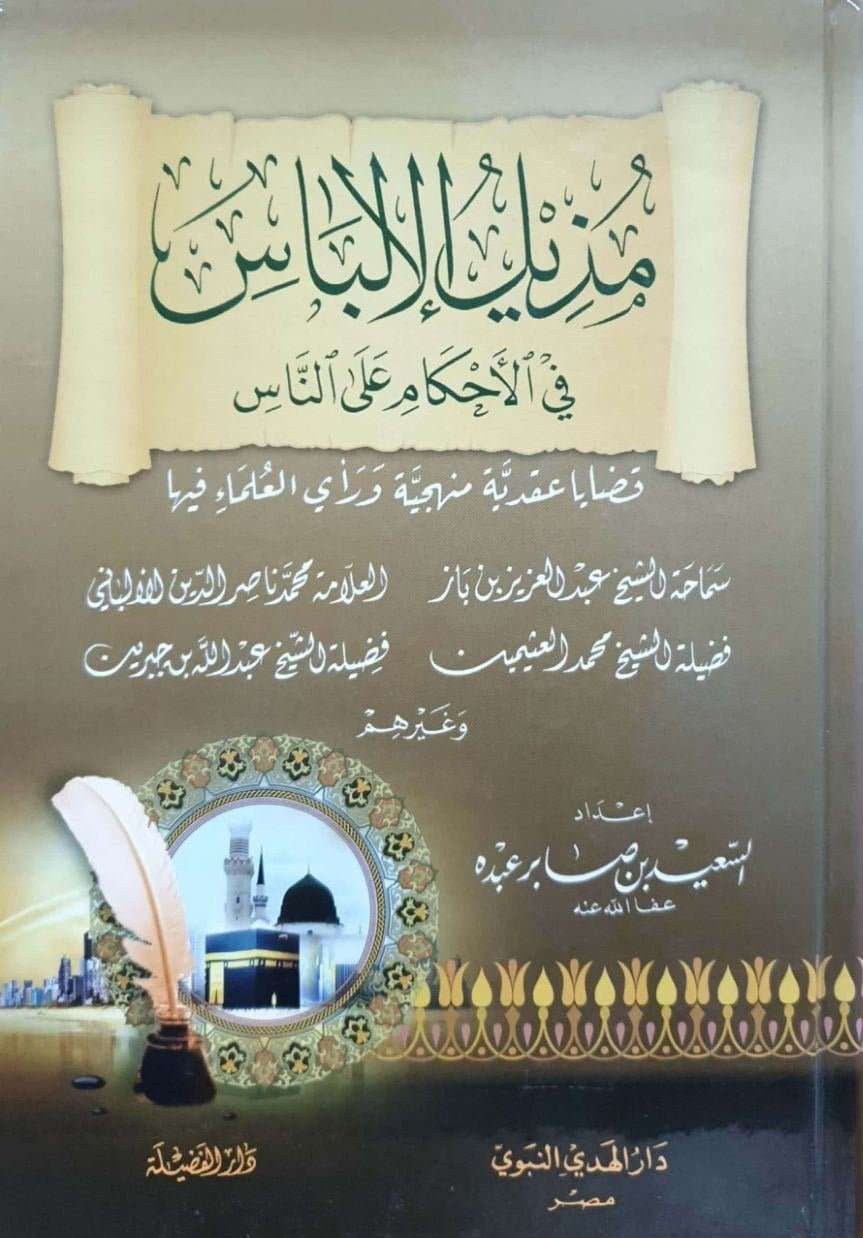 مُزِيلُ الإِلْبَاسِ
فِي الأَحْكَامِ عَلَى النَّاسِ
قضايا عقديَّة منهجيَّة وَرَأي العُلمَاءِ فيها
سَمَاحَة الشيخ عَبد العزيز بن بَاز العلّامة محمَّد ناصر الدّين الألباني
فضيلة الشيخ محمد العثيمين فضيلة الشّيخ عَبد اللَّه بن جبرين
وَغَيْرهِمْ
إعْدَاد
السَّعيد بن صَابر عَبده
عفا الله عنه
دَارُ الهَدْي النبَويّ دَارُ الفَضيلَة
مصر